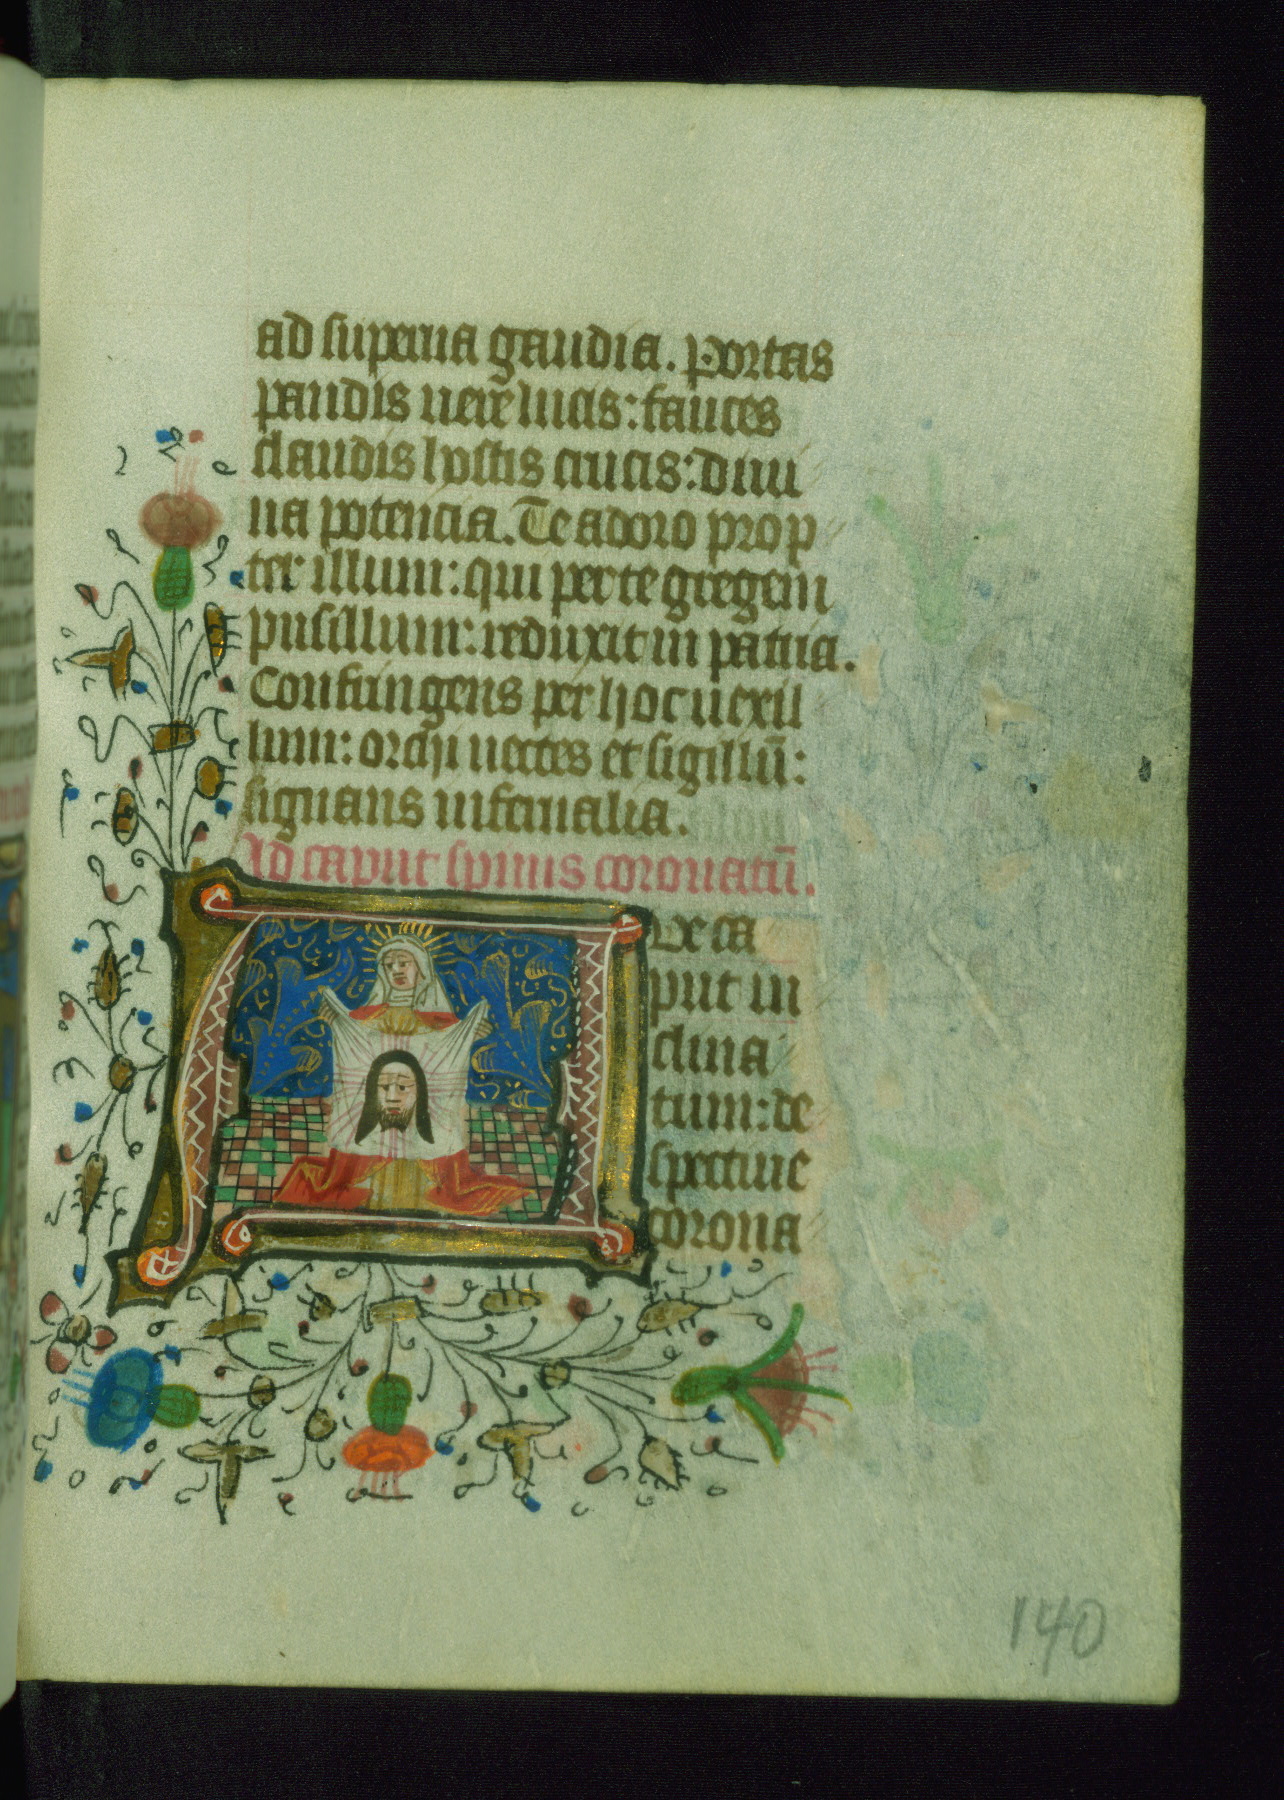 ad superna gaudia. Portas
pandis vere lucis: fauces
claudis hostis crucis: divi
na potencia. Te adoro prop
ter illum: qui per te gregem
pusillum: reduxit in patria.
Confringens per hoc uexil
lum: orchi uectes et sigillū:
signans infernalia.
Ad caput spinis coronatū.
Aue ca
put in
clina
tum: de
spectiue
corona
140